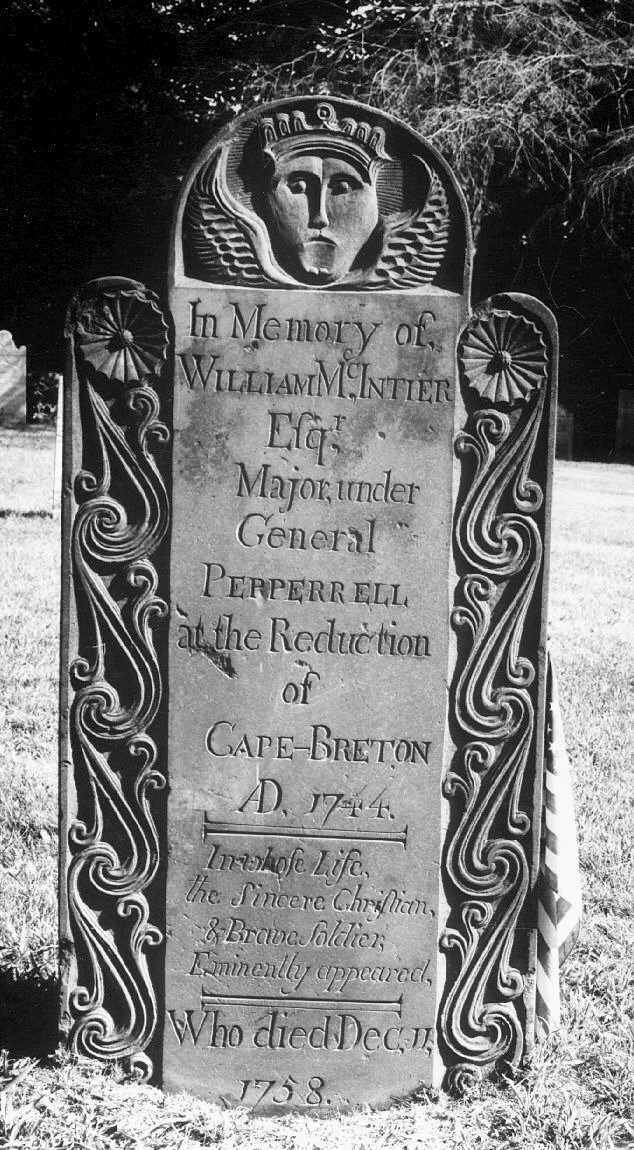 In Memory of,
WILLIAM Mᶜ.INTIER
Eſqʳ.
Major, under
General
PEPPERRELL
at the Reduction
of
CAPE-BRETON
AD. 1744.
In whoſe Life,
the Sincere Chriſtian,
& Brave Soldier,
Eminently appeared,
Who died Dec. 11,
1758.